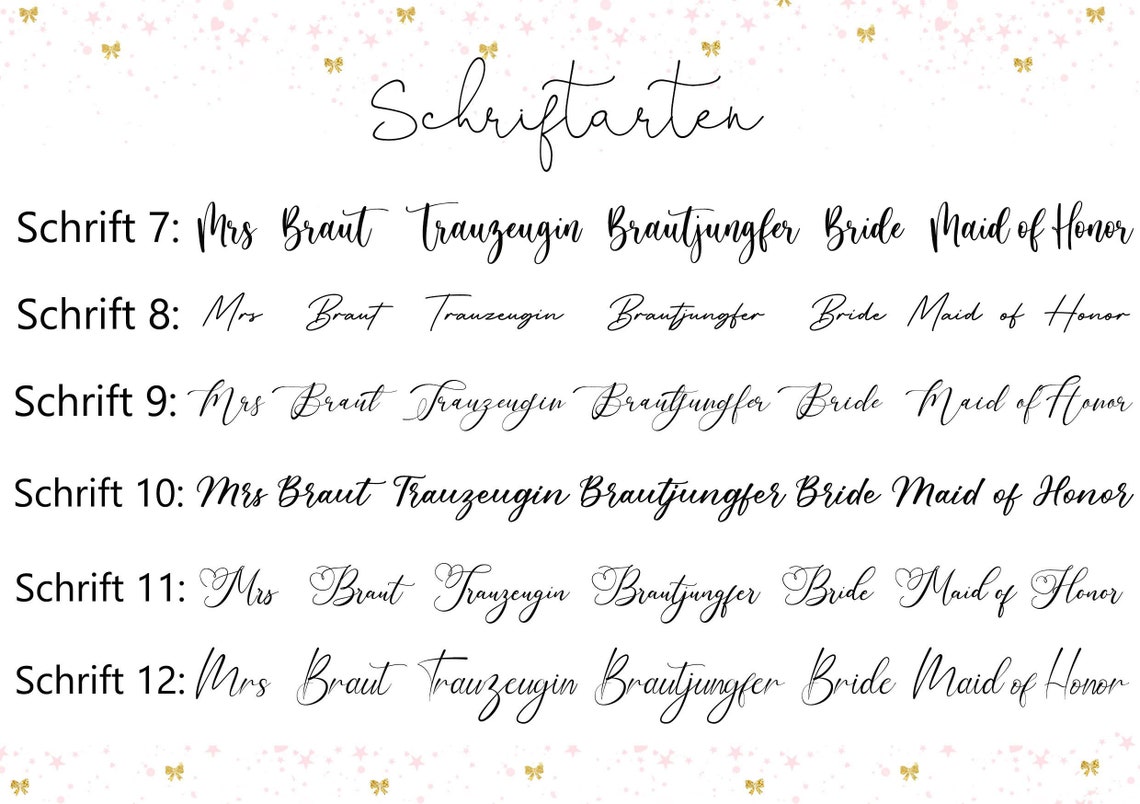 Schriftarten
Schrift 7: Mrs Braut Trauzeugin Brautjungfer Bride Maid of Honor
Schrift 8: Mrs Braut Trauzeugin Brautjungfer Bride Maid of Honor
Schrift 9: Mrs Braut Trauzeugin Brautjungfer Bride Maid of Honor
Schrift 10: Mrs Braut Trauzeugin Brautjungfer Bride Maid of Honor
Schrift 11: Mrs Braut Trauzeugin Brautjungfer Bride Maid of Honor
Schrift 12: Mrs Braut Trauzeugin Brautjungfer Bride Maid of Honor